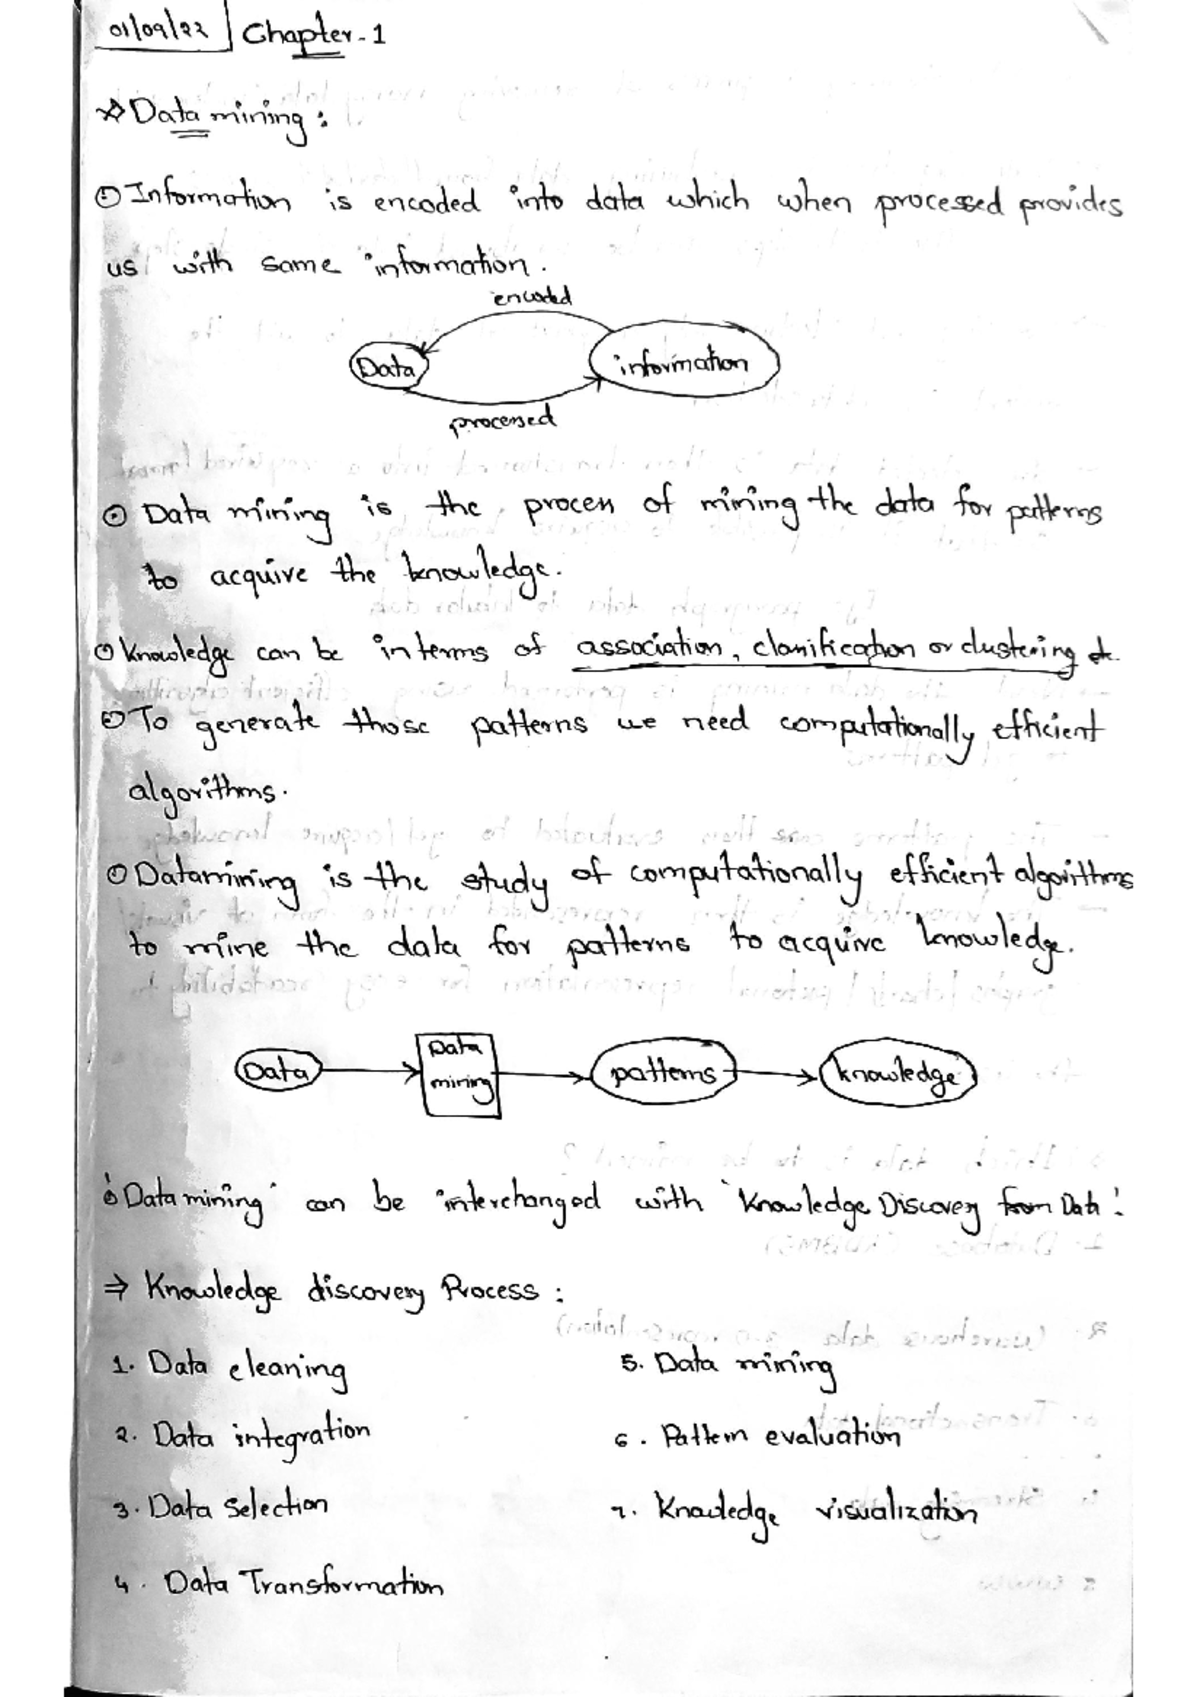 01/09/22 Chapter-1
Data mining:
Information is encoded into data which when processed provides
us with same information.
encoded
Data information
processed
Data mining is the process of mining the data for patterns
to acquire the knowledge.
Knowledge can be interms of association, classification or clustering etc.
To generate those patterns we need computationally efficient
algorithms.
Datamining is the study of computationally efficient algorithms
to mine the data for patterns to acquire knowledge.
Data Data mining patterns knowledge
'Data mining' can be interchanged with 'Knowledge Discovery from Data'.
⇒ Knowledge discovery Process :
1. Data cleaning
2. Data integration
3. Data Selection
4. Data Transformation
5. Data mining
6. Pattern evaluation
7. Knowledge visualization